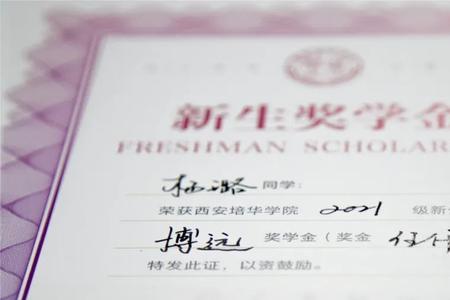 新生奖学金
FRESHMAN SCHOLAR
杨璐 同学:
荣获西安培华学院 2021 级新
博远 奖学金(奖金
特发此证,以资鼓励。